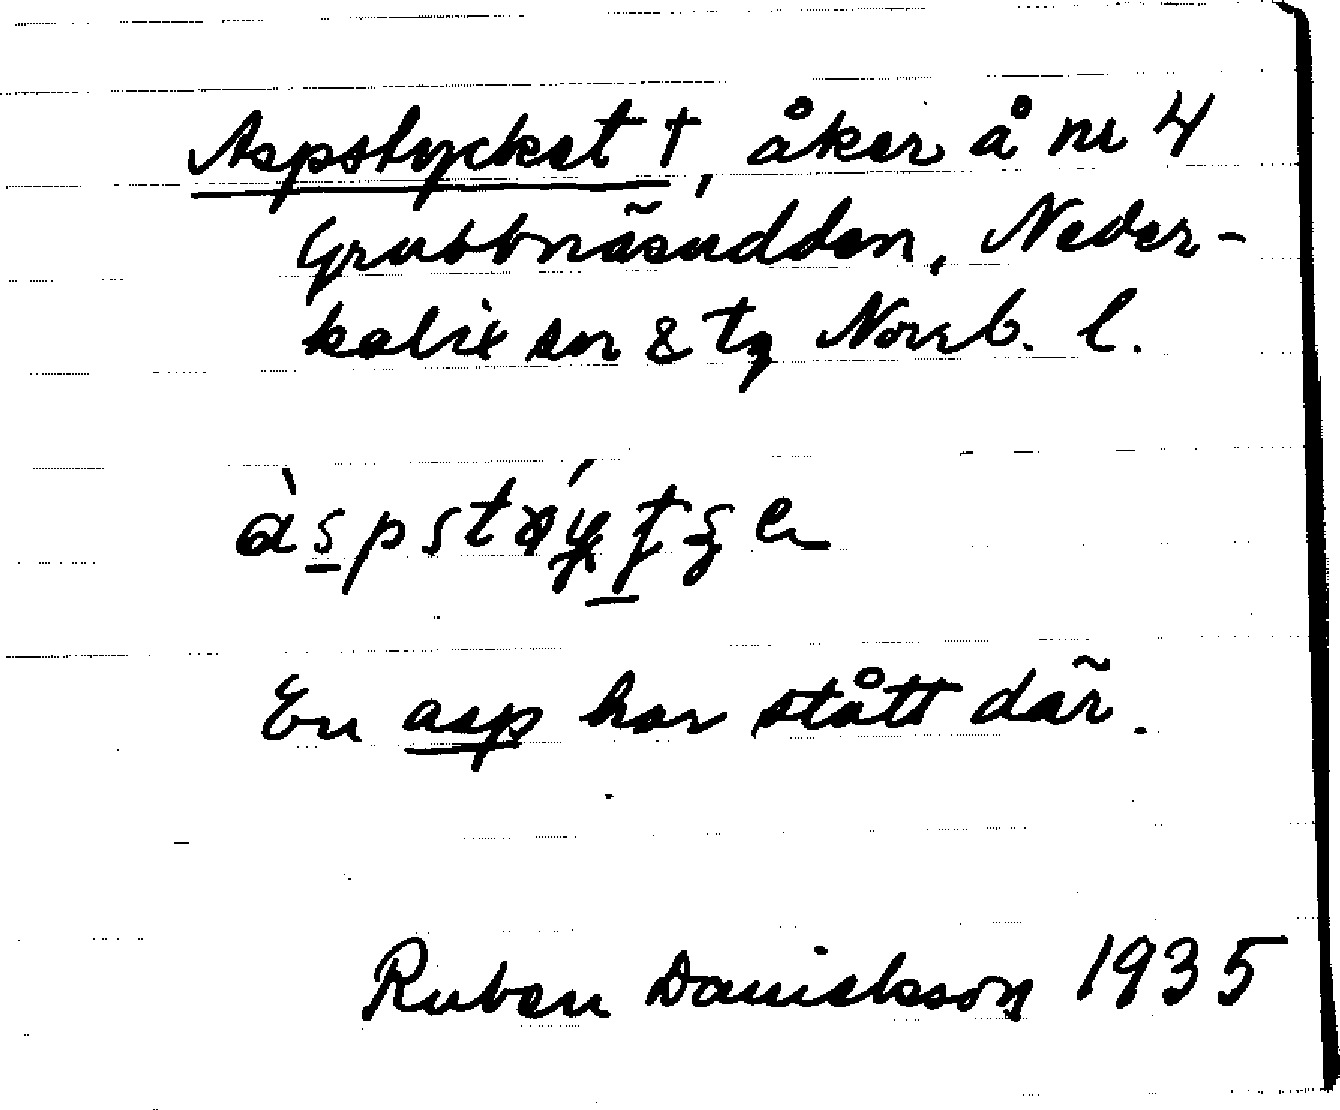 Aspstycket †, åker å nr 4
Grubbnäsudden, Neder-
kalix sn & tg Norrb. l.
En asp har stått där.
Ruben Danielsson 1935